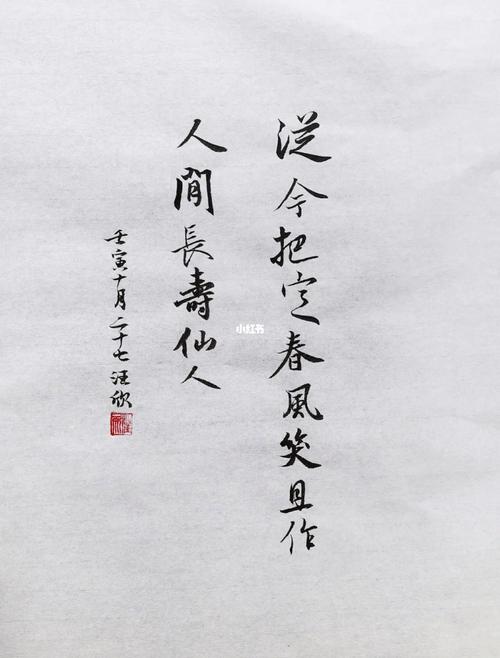 從今把定春風笑且作
人間長壽仙人
壬寅十月二十七汪欣
小红书